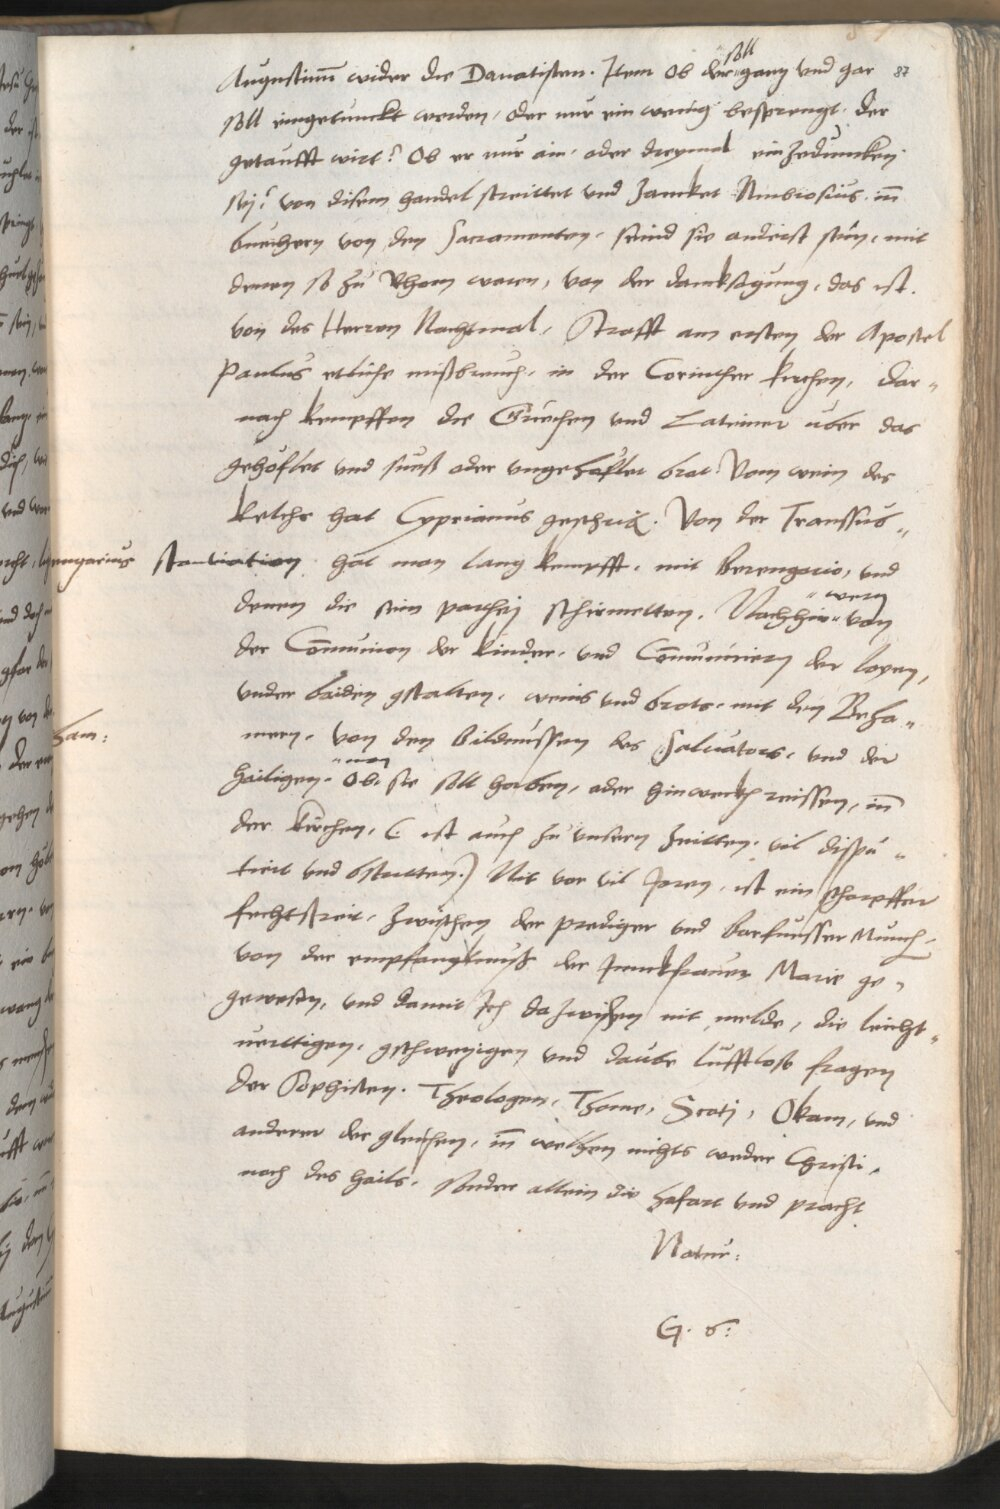 87
Augustinum wider die Donatisten. Item Ob der soll gantz vnd gar
soll eingetunckt werden, oder nur ein wenig besprengt, der
getaufft wirt? Ob er nur ain, oder dreymal einzeduncken
sey? von disem handel streittet vnd zancket Ambrosius, in
buechern von den Sacramenten, seind sie anderst sein, mit
denen so zu Rhom waren, von der dancksagung, das ist.
von des Herren Nachtmal, Strafft am ersten der Apostel
Paulus etliche mißbreuch, in der Corinther kirchen, dar-
nach kempffen die Griechen vnd Lateiner uber das
gehöflet vnd sueß oder vngehöflet brot. Vom wein des
kelchs hat Cyprianus geschriben. Von der Transsub-
stantiation hat man lang kempfft, mit Berengario, vnd
Berengarius
denen die sein parthej schirmetten. Nachhin wern von
der Communion der kinder, vnd Communiern der layen,
vnder baiden gstalten, weins vnd brots, mit den Beha-
men, von den bildnussen des Salvators, vnd der
ham:
hailigen. Ob man sie soll haben, oder hinweckh reissen, in
der kirchen, (ist auch zu vnsern zeitten, vil dispu-
tiert vnd gstritten.) Nit vor vil Jaren, ist ein scharpffer
fechtstreit, zwischen der prediger vnd barfuesser Münch,
von der empfangknuß der Junckfrauen Marie ge-
gewesen, vnd damit Ich dazwischen nit melde, die leicht-
uerttigen, gschwetzigen vnd daube lufftloß fragen
der Sophisten. Theologen, Thome, Scoti, Okam, vnd
anderer der gleichen, in welchen nichts weder Christi,
noch des hails, sonder allein die hofart vnd pracht
Natur:
G. 6: